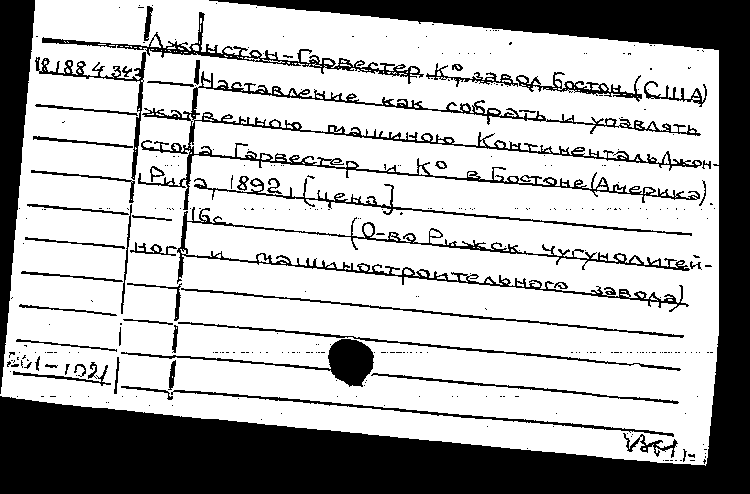 Джонстон-Гарвестер Кº завод Бостон (США)
18.188.4.343
Наставление как собрать и упавлять
жатвенною машиною Континенталь Джон-
стона Гарвестер и Кº в Бостоне (Америка).
Рига, 1892, [цена].
16с (О-во Рижск. чугунолитей-
ного и машиностроительного завода)
201-1021